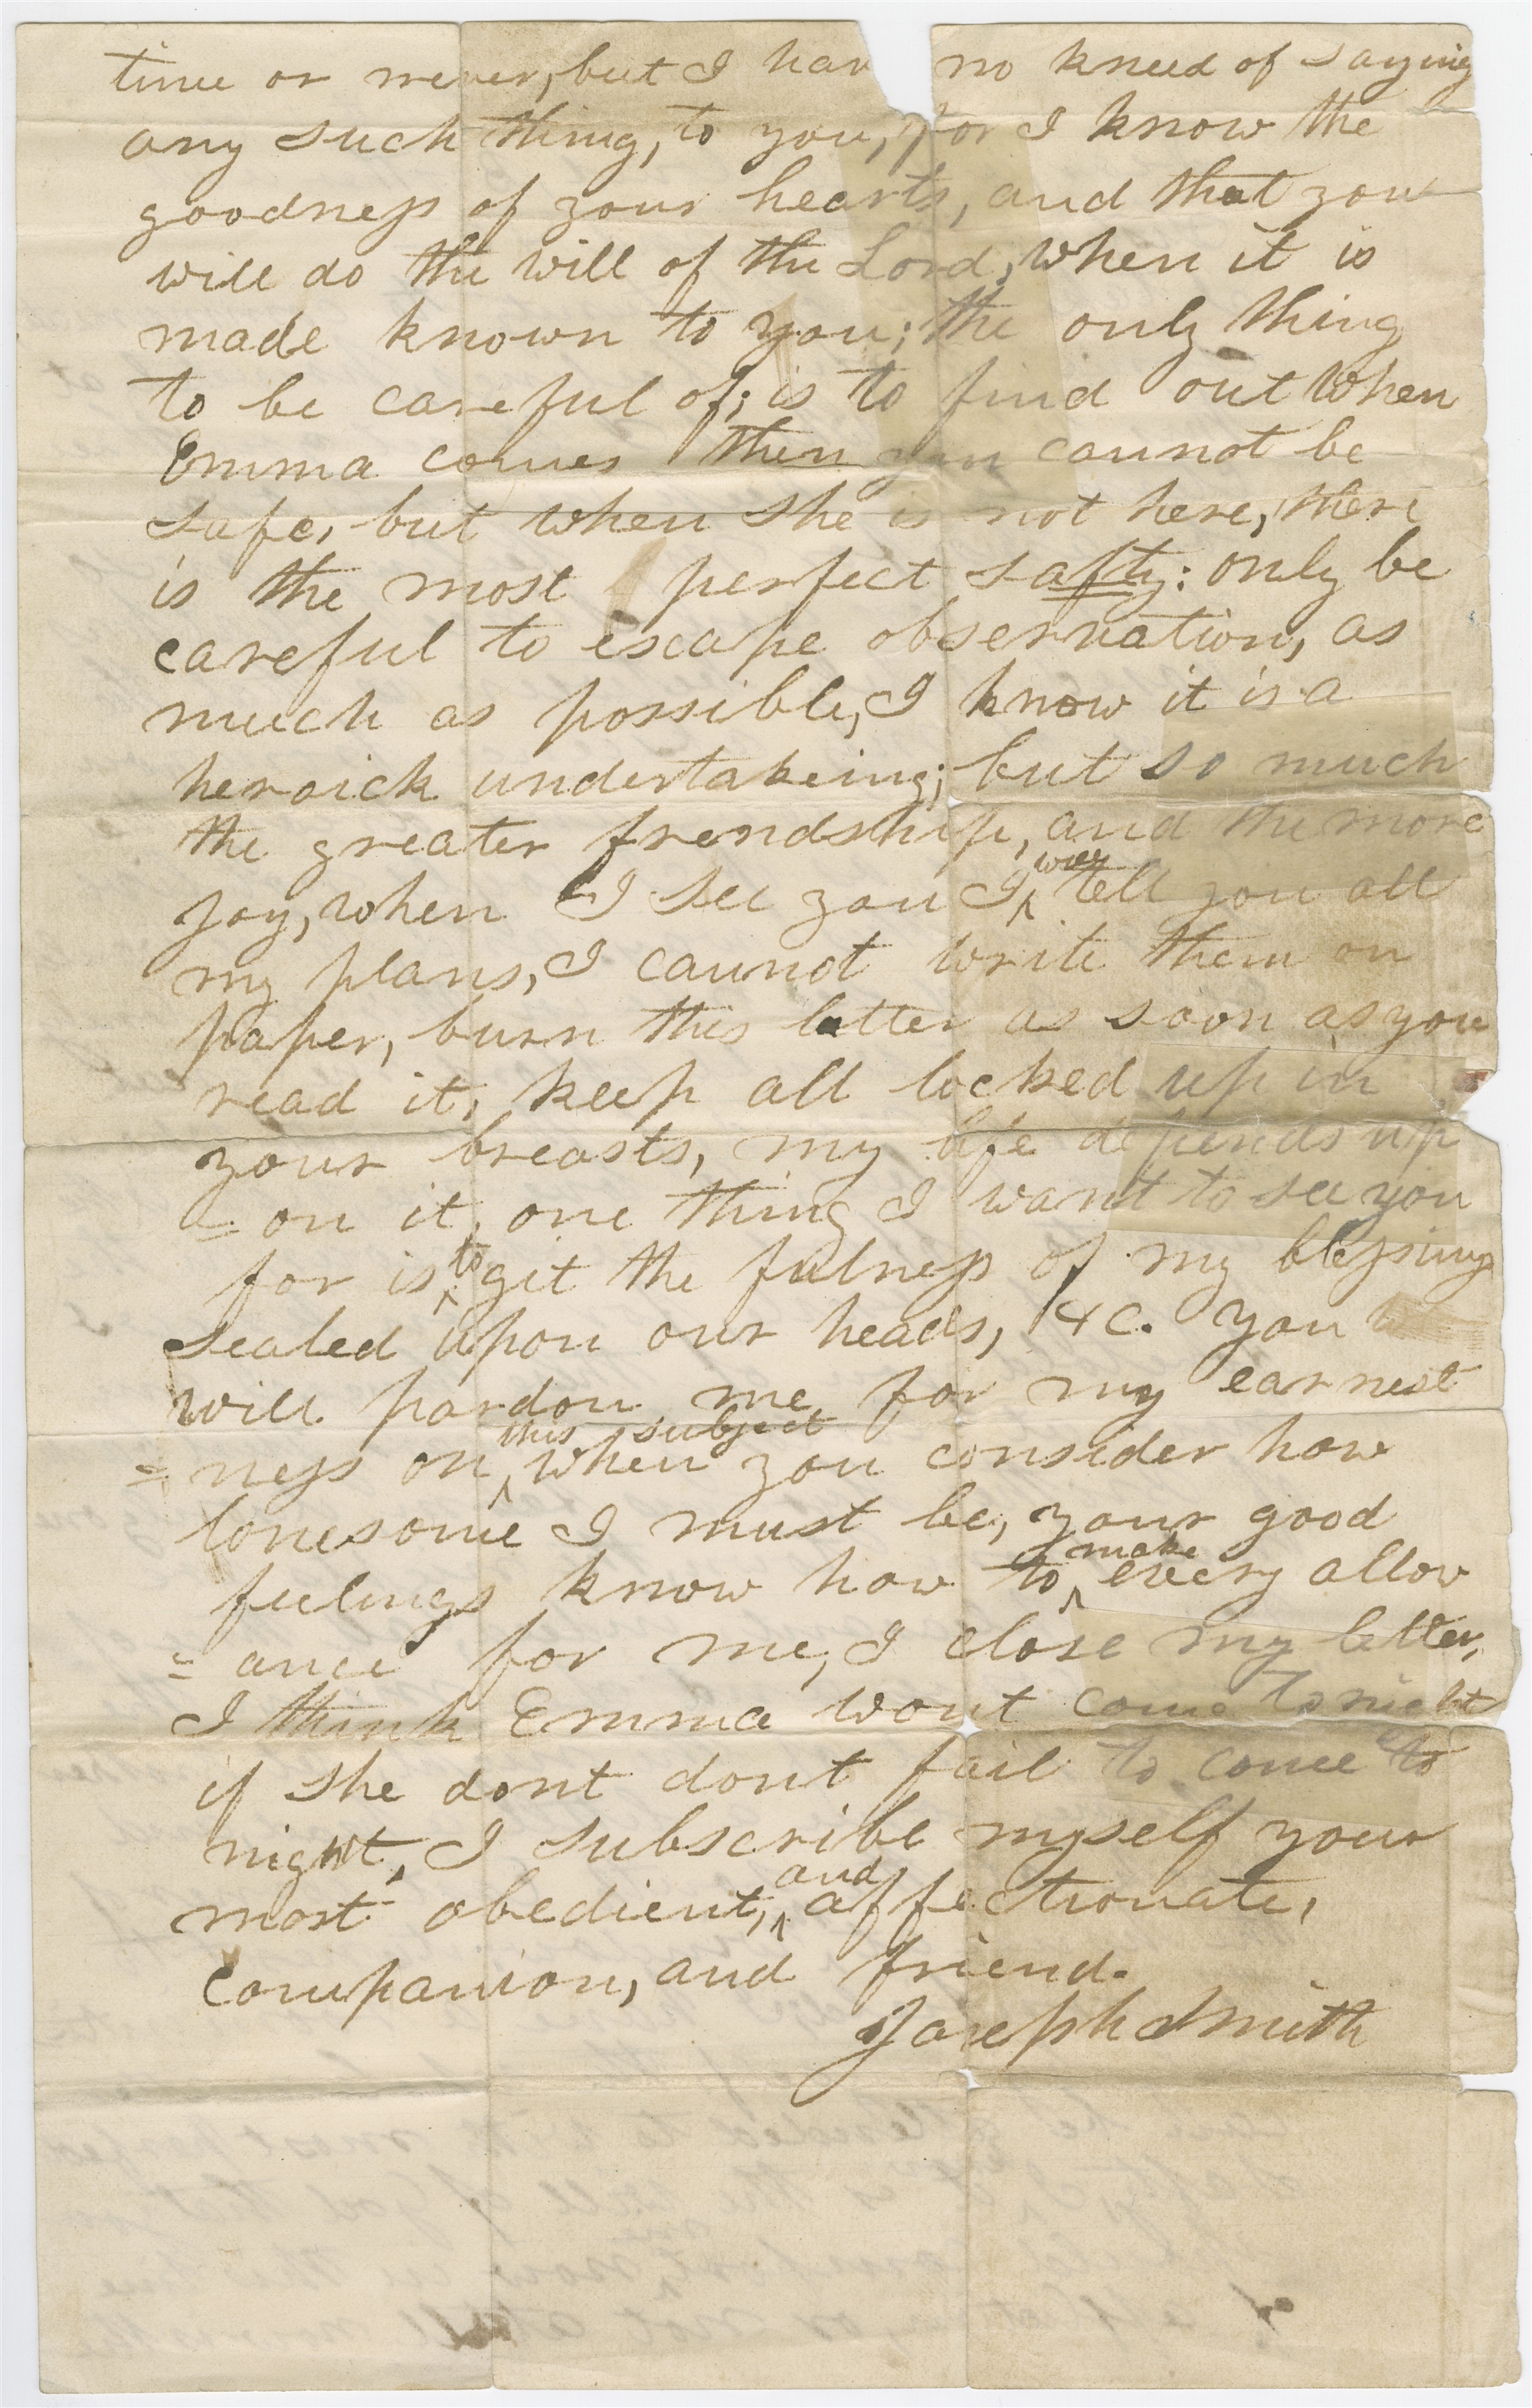 time or never, but I hav no kneed of saying
any such thing, to you, for I know the
goodness of your hearts, and that you
will do the will of the Lord, when it is
made known to you; the only thing
to be careful of; is to find out when
Emma comes then you cannot be
safe, but when she is not here, there
is the most perfect safty: only be
careful to escape observation, as
much as possible, I know it is a
heroick undertakeing; but so much
the greater frendship, and the more
Joy, when I see you I will tell you all
my plans, I cannot write them on
paper, burn this letter as soon as you
read it; keep all locked up in
your breasts, my life depends up
=on it. one thing I want to see you
for is to git the fulness of my blessings
sealed upon our heads, &c. you
will pardon me for my earnest
=ness on this subject when you consider how
lonesome I must be, your good
feelings know how to make every allow
=ance for me, I close my letter,
I think Emma wont come tonight
if she dont dont fail to come to
night, I subscribe myself your
most obedient, and affectionate,
companion, and friend.
Joseph Smith